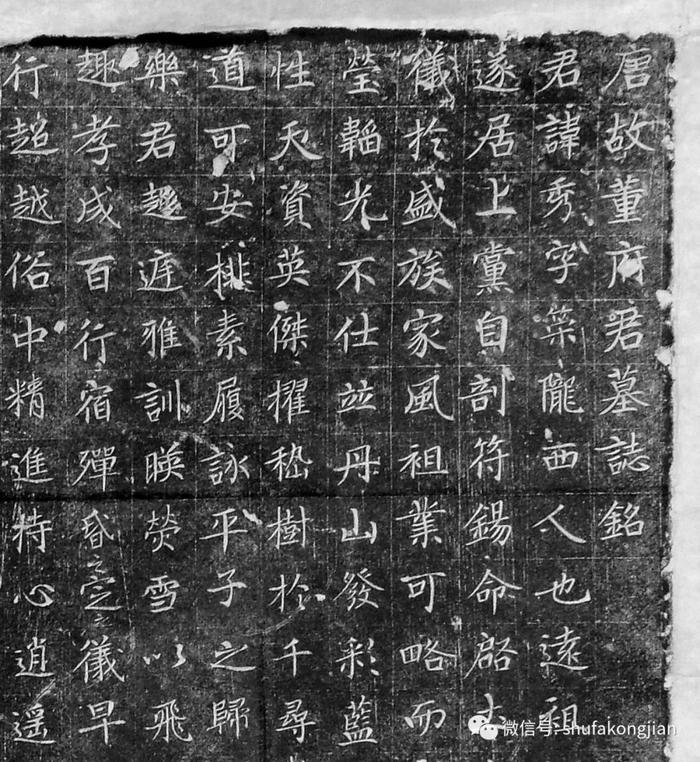 唐故董府君墓誌銘
君諱秀字榮隴西人也遠祖
遂居上黨自剖符錫命啓土
儀於盛族家風祖業可略而
瑩韜光不仕並丹山發彩藍
性天資英傑擢嵇樹於千尋
道可安棑素履詠平子之歸
樂君趍遊雅訓暎熒雪以飛
趣孝成百行宿殫昏定儀早
行超越俗中精進持心逍遥
微信号: shufakongjian